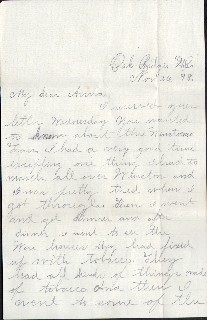 Oak Ridge, N.C.
Nov 20 98.
My Dear Anna,
I received your
letter Wednesday. You wanted
to know about the Winstone
Fair. I had a very good time
excepting one thing I had to
march all over Winston and
I was pretty tired when I
got through. Then I went
and got dinner and after
dinner I went to see the
Ware houses they had fixed
up with tobacco. They
had all kinds of things made
of tobacco and then I
went to some of the